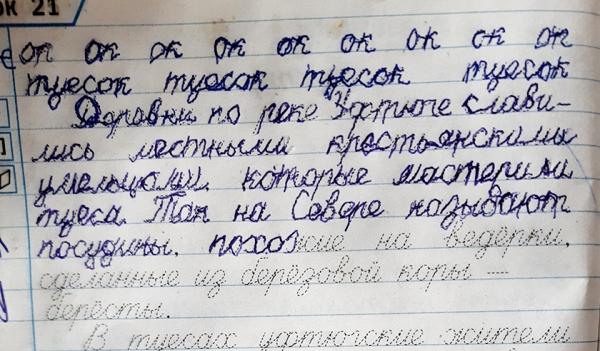 ОК 21
ок ок ок ок ок ок ок ок ок
туесок туесок туесок туесок
Деревни по реке Уфтюге слави-
лись местными крестьянскими
умельцами, которые мастерили
туеса. Так на Севере называют
посудины, похожие на ведёрки,
сделанные из берёзовой коры —
берёсты.
В туесах уфтюгские жители